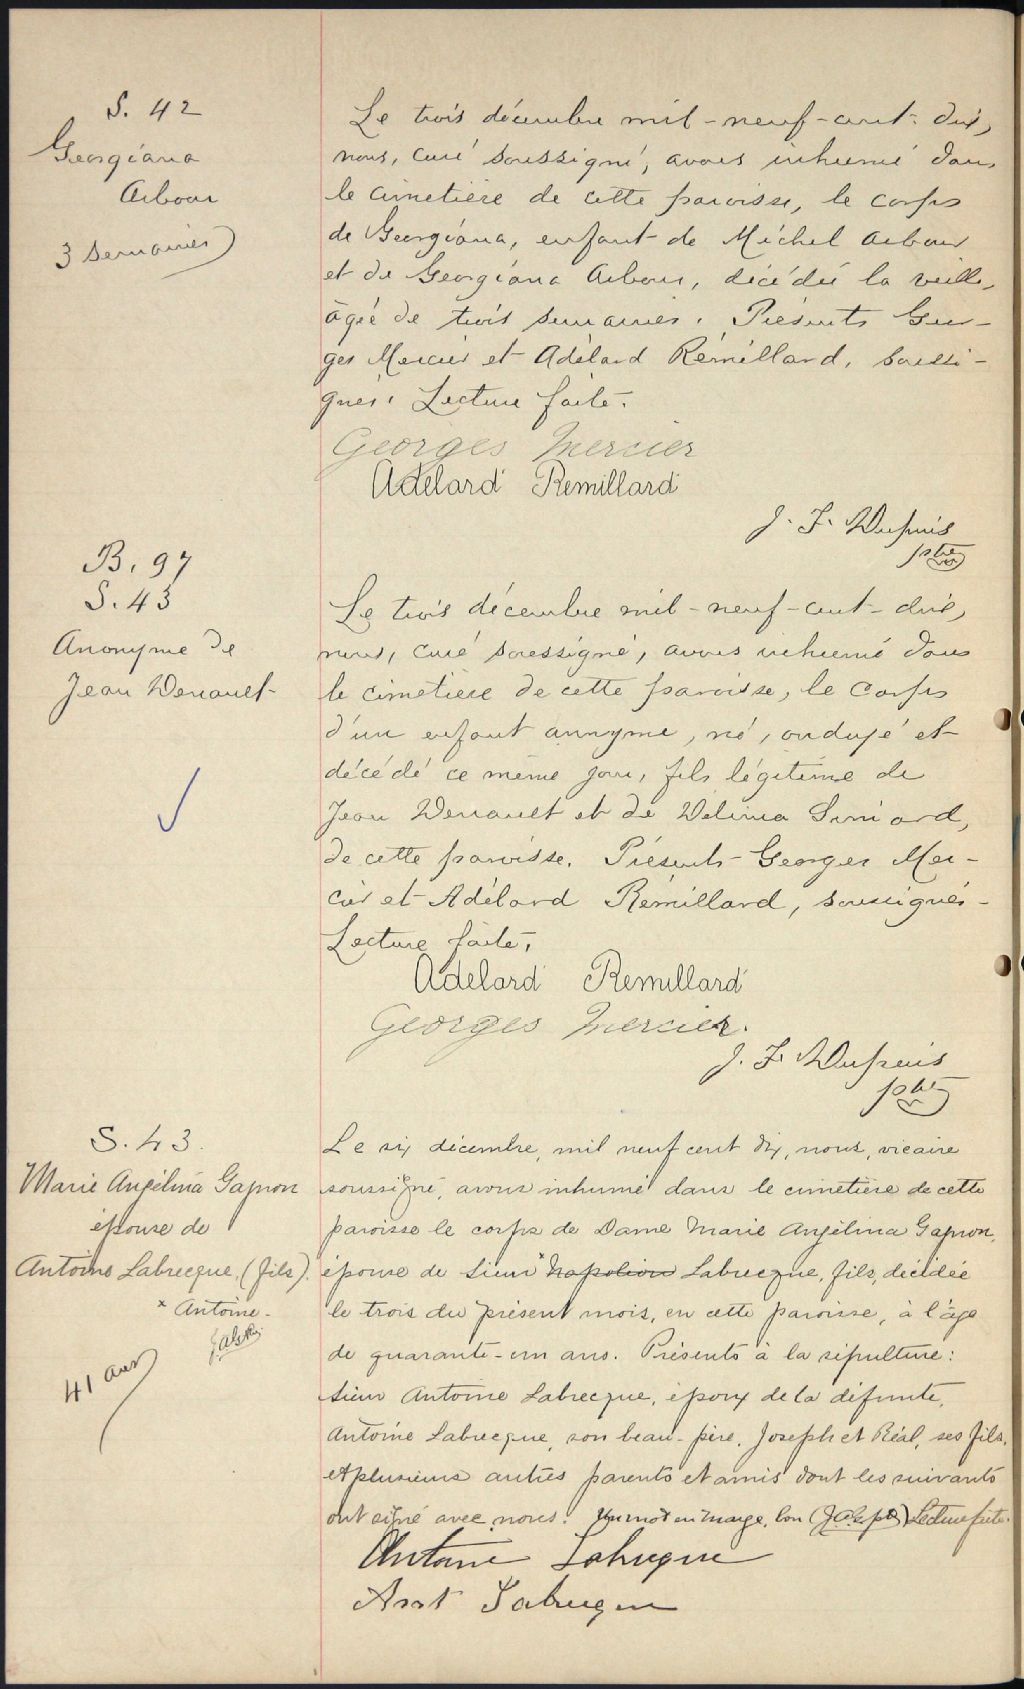 S. 42
Georgéana
Arbour
3 semaines
Le trois décembre mil-neuf-cent-dix,
nous, curé soussigné, avons inhumé dans
le cimetière de cette paroisse, le corps
de Georgéana, enfant de Michel Arbour
et de Georgéana Arbour, décédée la veille,
âgée de trois semaines. Présents Geor-
ges Mercier et Adélard Rémillard, soussi-
gnés. Lecture faite.
Georges Mercier
Adelard Remillard
J. F. Dupuis
ptre
B. 97
S. 43
Anonyme de
Jean Denault
Le trois décembre mil-neuf-cent-dix,
nous, curé soussigné, avons inhumé dans
le cimetière de cette paroisse, le corps
d'un enfant annyme, né, ondoyé et
décédé ce même jour, fils légitime de
Jean Denault et de Délima Simard,
de cette paroisse. Présents Georges Mer-
cier et Adélard Rémillard, soussignés-
Lecture faite.
Adelard Remillard
Georges Mercier.
J. F. Dupuis
ptre
S. 43.
Marie Angélina Gagnon
épouse de
Antoine Labrecque, (fils).
x Antoine.
41 ans
Le six décembre, mil neuf cent dix, nous, vicaire
soussigné, avons inhumé dans le cimetière de cette
paroisse le corps de Dame Marie Angélina Gagnon,
épouse de Sieur x Napoléon Labrecque, fils, décédée
le trois du présent mois, en cette paroisse, à l'âge
de quarante-un ans. Présents à la sépulture:
Sieur Antoine Labrecque, époux de la défunte,
Antoine Labrecque, son beau-père, Joseph et Réal, ses fils,
et plusieurs autres parents et amis dont les suivants
ont signé avec nous. Un mot en marge, bon Lecture faite.
Antoine Labrecque
Labrecque